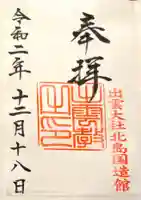 奉拝
出雲大社北島国造館
出雲教
之印
令和二年十二月十八日